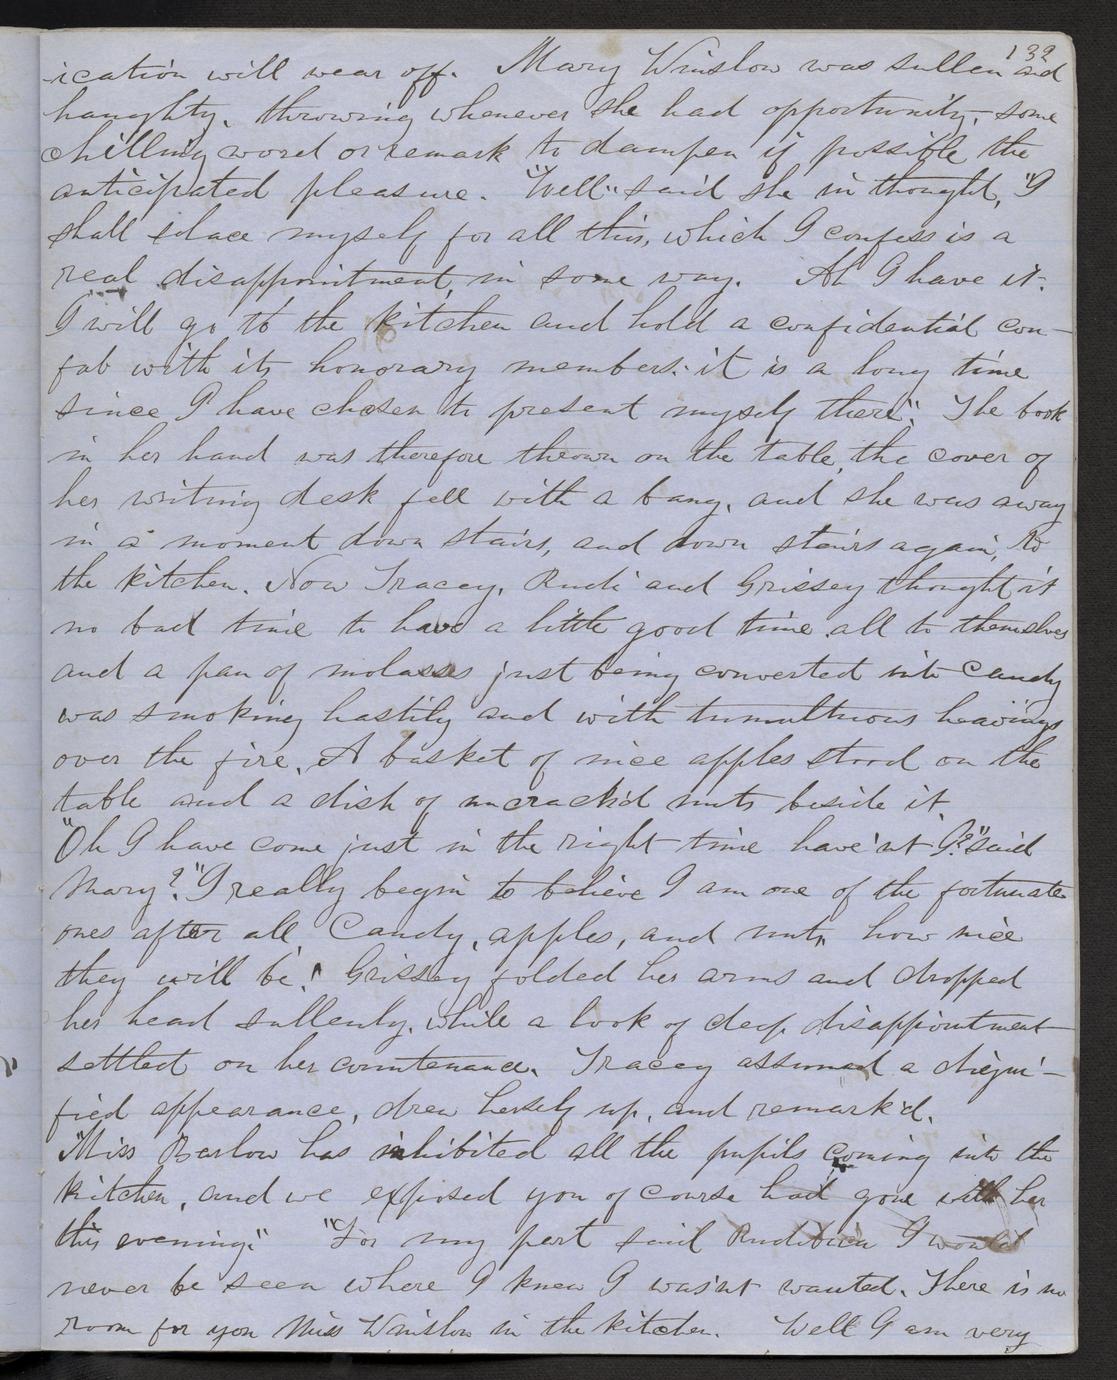 139
ication will wear off. Mary Winslow was sullen and
haughty, throwing whenever she had opportunity, some
chilling word or remark to dampen if possible the
anticipated pleasure. "Well" said she in thought, "I
shall solace myself for all this, which I confess is a
real disappointment, in some way. Ah I have it.
I will go to the kitchen and hold a confidential con-
fab with its honorary members: it is a long time
since I have chosen to present myself there". The book
in her hand was therefore thrown on the table, the cover of
her writing desk fell with a bang, and she was away
in a moment down stairs, and down stairs again, to
the kitchen. Now Tracey, Rudi and Grissey thought it
no bad time to have a little good time all to themselves
and a pan of molasses just being converted into candy
was smoking hastily and with tumultuous heavings
over the fire. A basket of nice apples stood on the
table and a dish of uncrackd nuts beside it.
"Oh I have come just in the right time have'nt I?" said
Mary? "I really begin to believe I am one of the fortunate
ones after all Candy, apples, and nuts, how nice
they will be! Grissey folded her arms and dropped
her head sullenly, while a look of deep disappointment
settled on her countenance. Tracey assumed a digni-
fied appearance, drew herself up, and remarkd.
"Miss Barlow has inhibited all the pupils coming into the
kitchen, and we exposed you of course had gone with her
this evening." "For my part said Rudibica I would
never be seen where I knew I was'nt wanted. There is no
room for you Miss Winslow in the kitchen. Well I am very